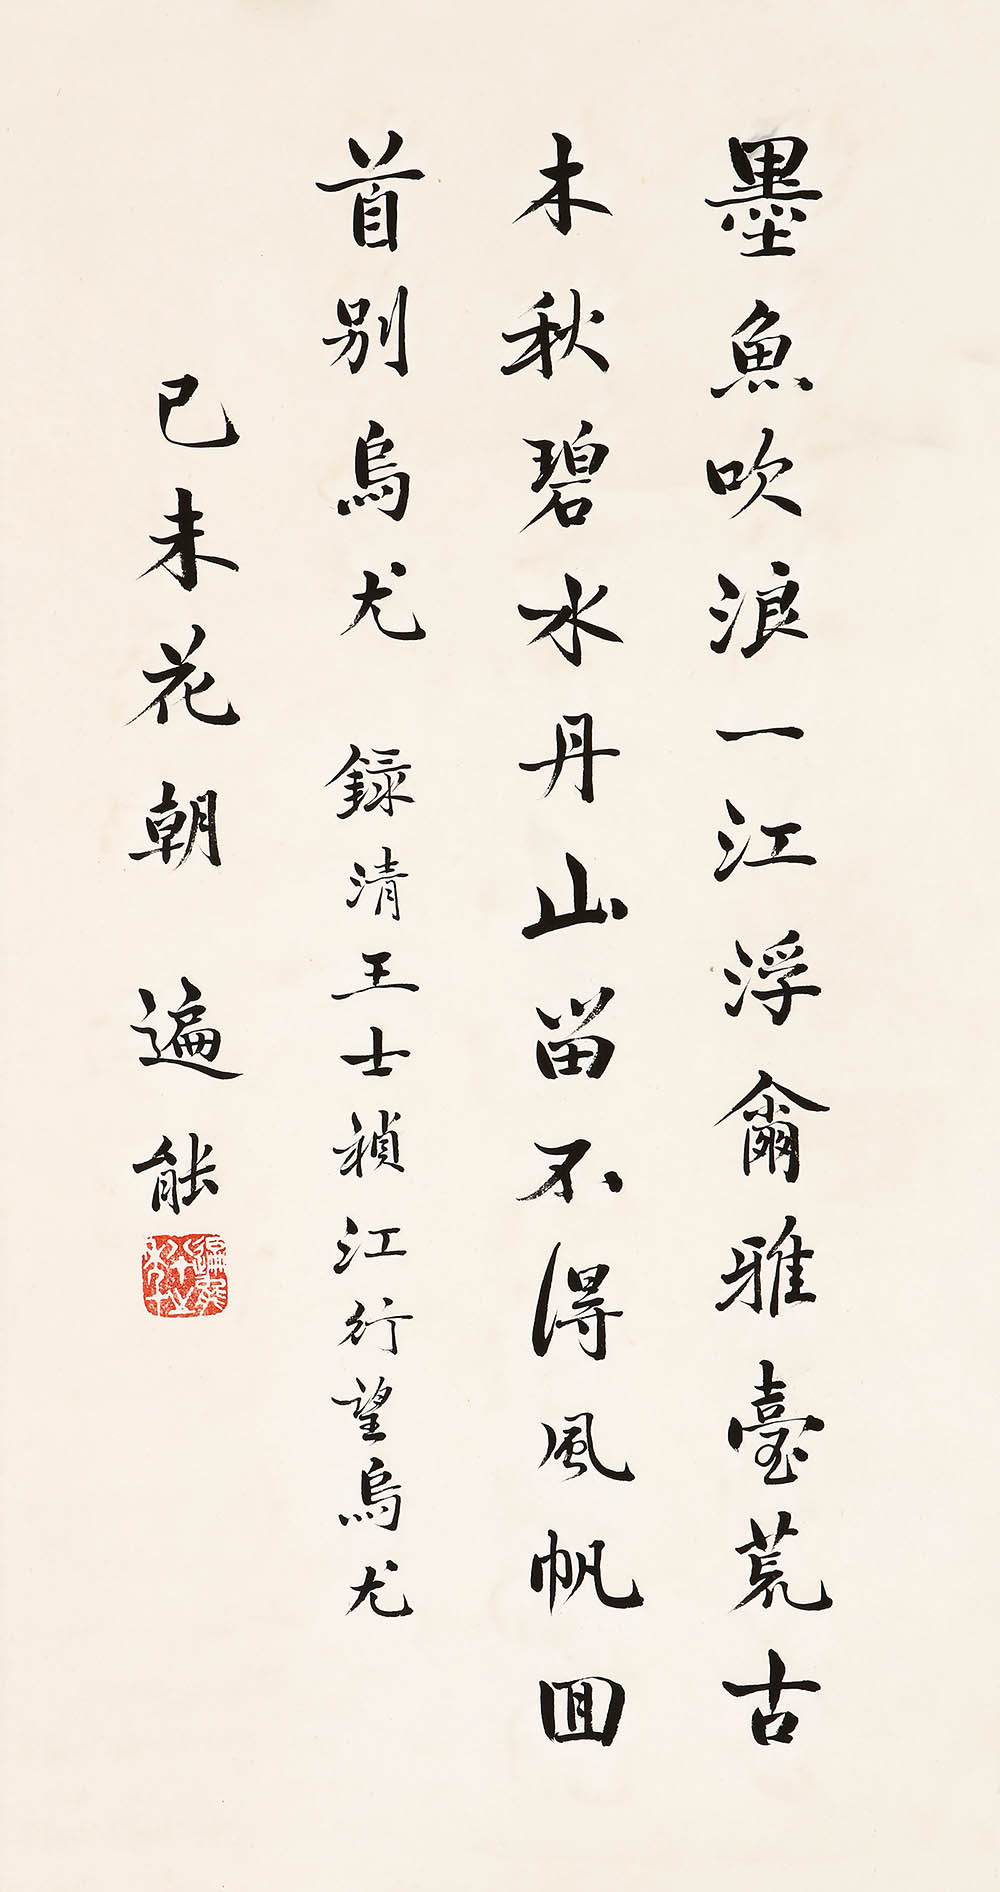 墨魚吹浪一江浮爾雅臺荒古
木秋碧水丹山留不得風帆回
首別烏尤 録清王士禎江行望烏尤
己未花朝 遍能